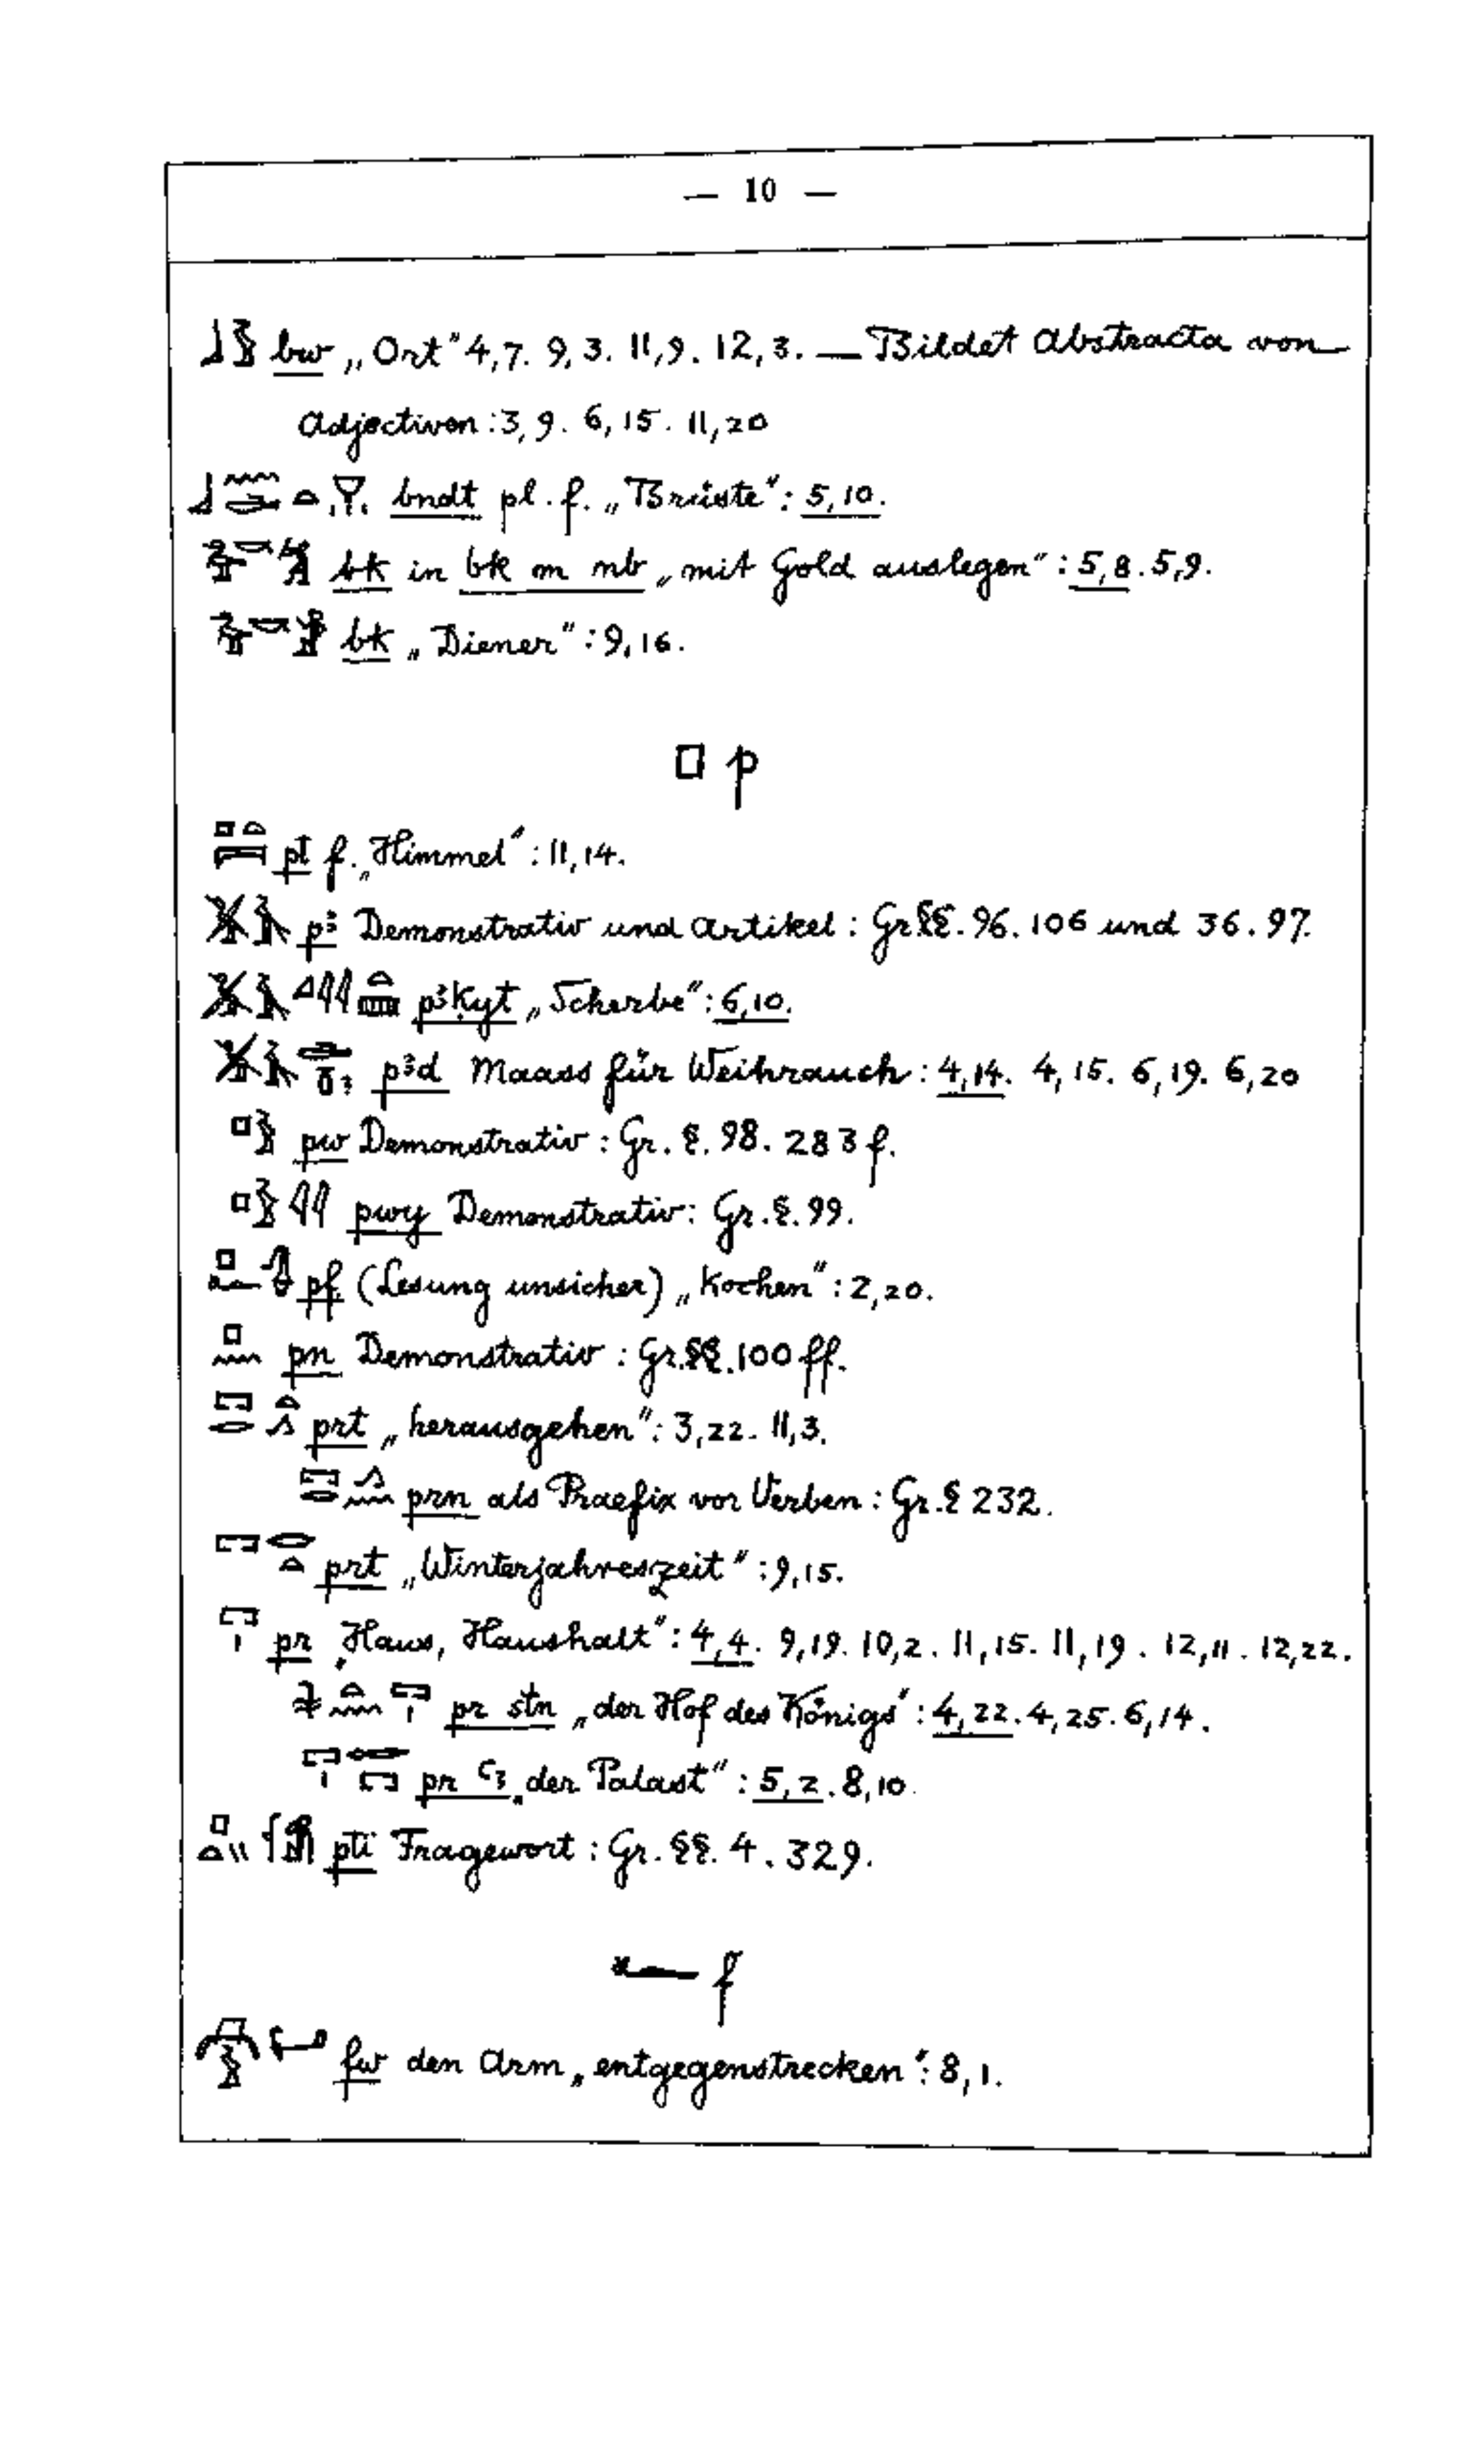 — 10 —
𓃀𓅱 bw „Ort“ 4,7. 9,3. 11,9. 12,3. — Bildet Abstracta von
Adjectiven: 3,9. 6,15. 11,20
bndt pl. f. „Brüste“: 5,10.
bk in bk m nb „mit Gold auslegen“: 5,8. 5,9.
bk „Diener“: 9,16.
𓊪 p
𓊪𓏏𓇯 pt f. „Himmel“: 11,14.
𓅮𓄿 pꜣ Demonstrativ und Artikel: Gr §§. 96. 106 und 36. 97.
pꜣḳyt „Scherbe“: 6,10.
pꜣd Maass für Weihrauch: 4,14. 4,15. 6,19. 6,20
𓊪𓅱 pw Demonstrativ: Gr. §. 98. 283 f.
𓊪𓅱𓇋𓇋 pwy Demonstrativ: Gr. §. 99.
𓊪𓆑𓊮 pf (Lesung unsicher) „Kochen“: 2,20.
𓊪𓈖 pn Demonstrativ: Gr. §§. 100 ff.
𓉐𓂋𓏏𓂻 prt „herausgehen“: 3,22. 11,3.
𓉐𓂋𓂻𓈖 prn als Praefix vor Verben: Gr. § 232.
𓉐𓂋𓏏 prt „Winterjahreszeit“: 9,15.
𓉐𓏤 pr „Haus, Haushalt“: 4,4. 9,19. 10,2. 11,15. 11,19. 12,11. 12,22.
𓇓𓏏𓈖𓉐𓏤 pr stn „der Hof des Königs“: 4,22. 4,25. 6,14.
𓉐𓏤𓉻𓉐 pr ꜥꜣ „der Palast“: 5,2. 8,10.
pti Fragewort: Gr. §§. 4. 329.
𓆑 f
fw den Arm „entgegenstrecken“: 8,1.